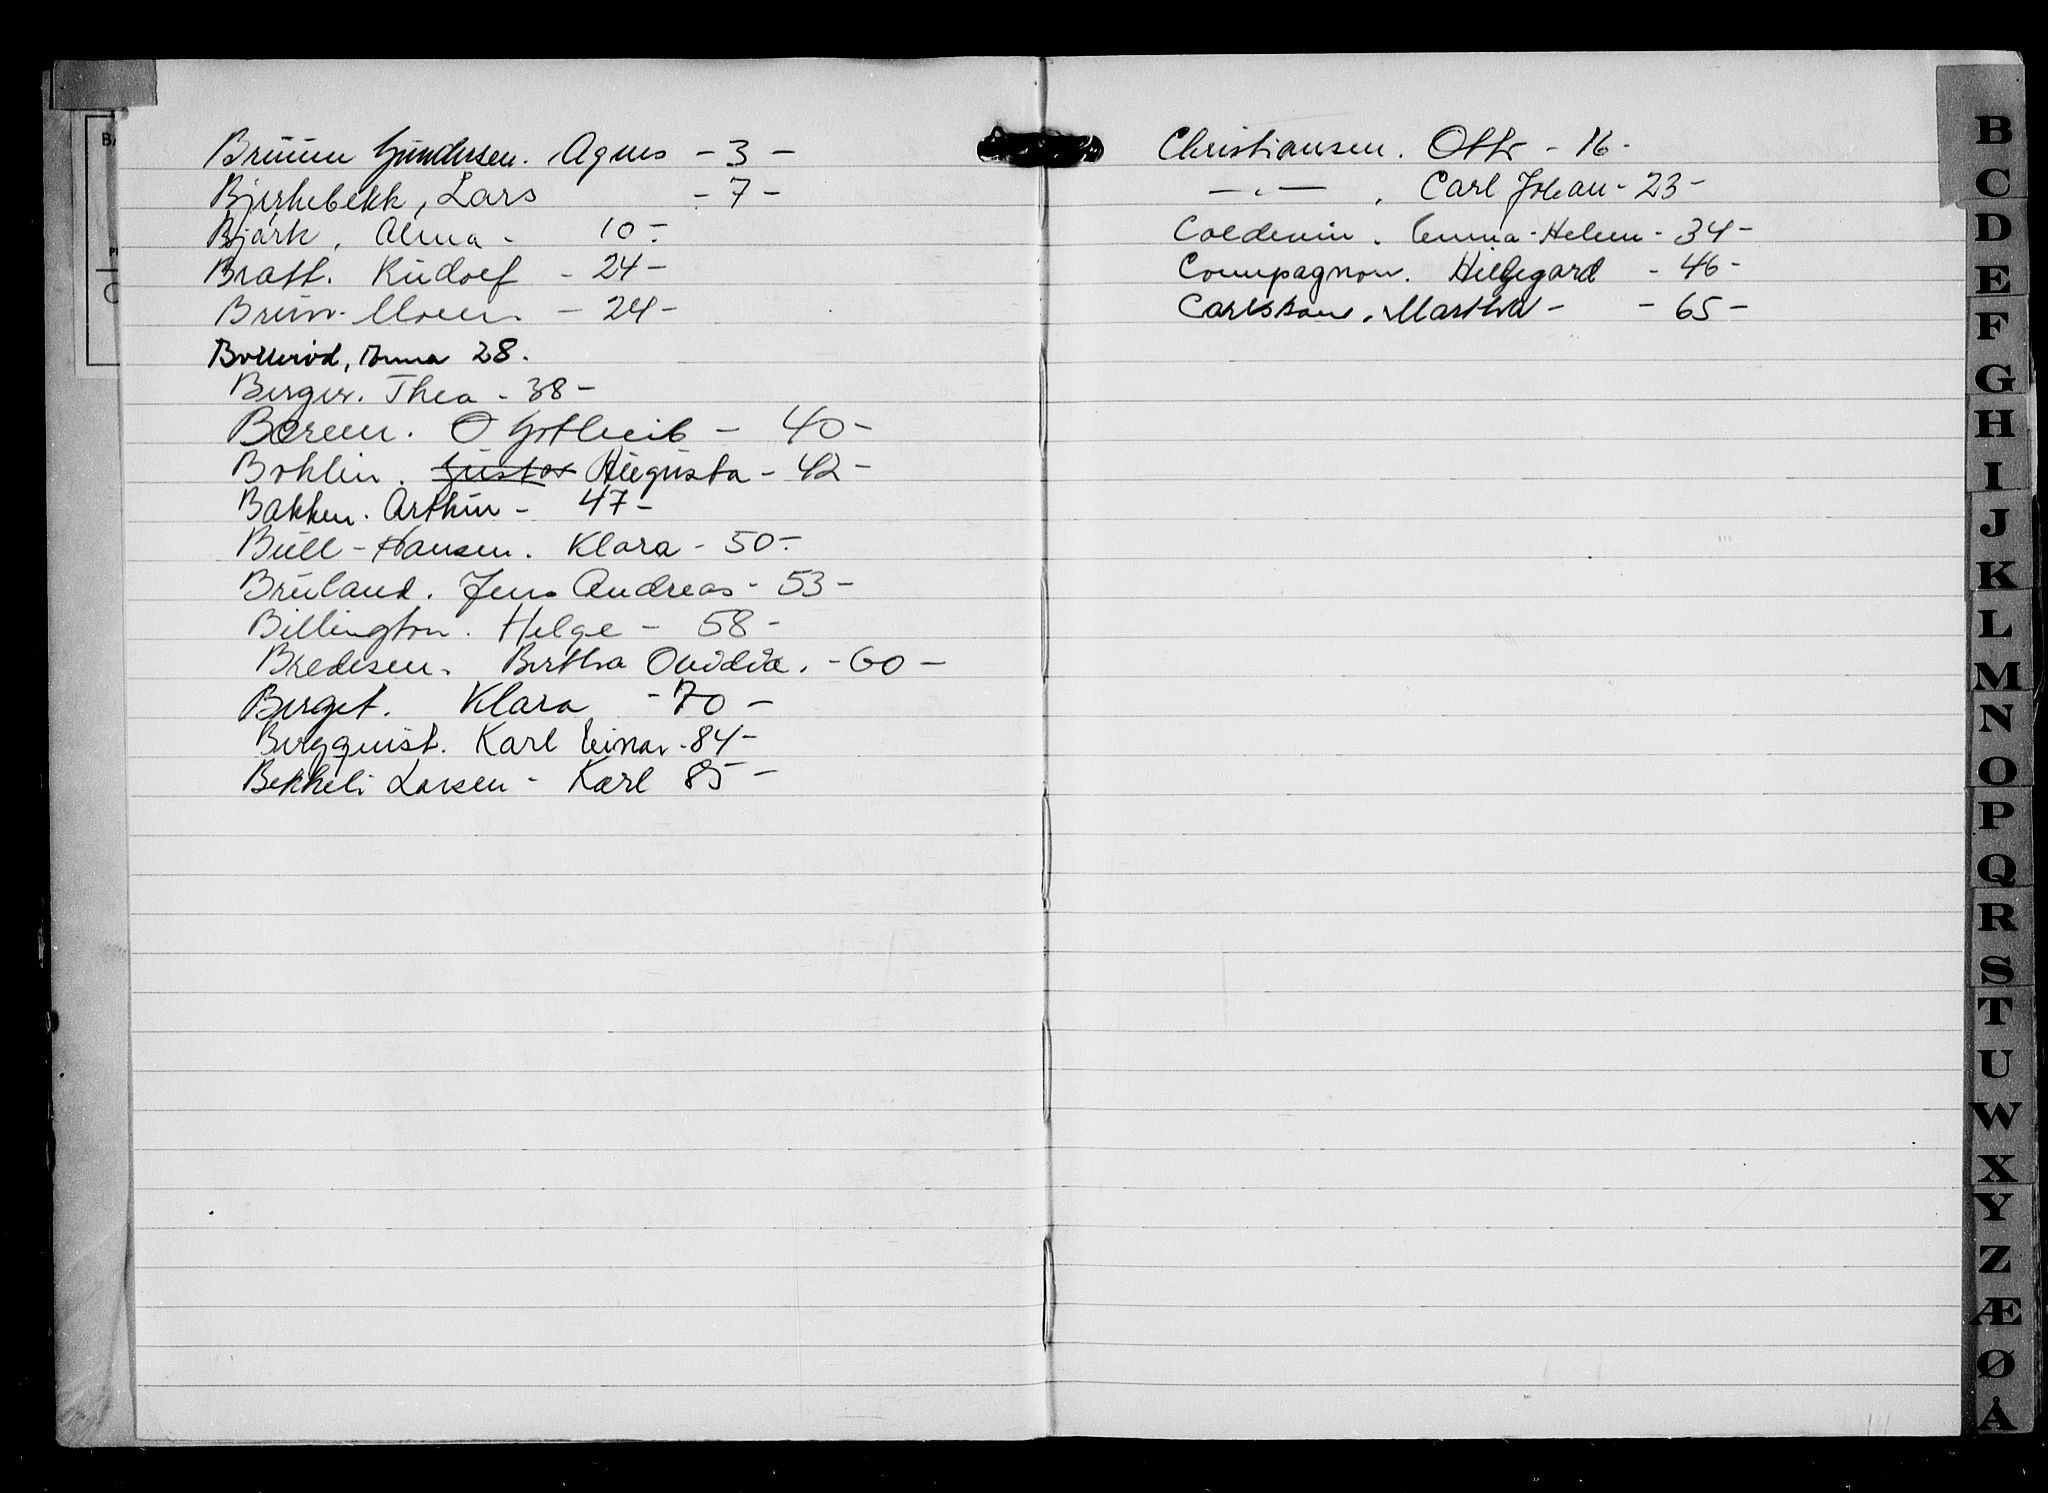 Bruun Gundersen. Agnes - 3 -
Bjerkebekk, Lars - 7 -
Björk, Alma - 10 -
Bratt. Rudolf - 24 -
Brun. - 24 -
Bollerød, Anna 28.
Berger. Thea - 38 -
Børeen. O Gotlieib - 40 -
Bohlin. Gustav Augusta - 42 -
Bakken. Arthur - 47 -
Bull-Hansen. Klara - 50 -
Bruland. Jens Andreas - 53 -
Billington. Helge - 58 -
Bredesen. Bertha Ovidia. - 60 -
Berget. Klara - 70 -
Bergquist. Karl Einar - 84 -
Bekkeli Larsen - Karl 85 -
Christiansen. Otto - 16 -
— " — . Carl Johan - 23 -
Coldevin. Emma-Helene - 34 -
Compagnon. Hildegard - 46 -
Carlsson. Martha - - 65 -
B
C
D
E
F
G
H
I
J
K
L
M
N
O
P
Q
R
S
T
U
W
X
Y
Z
Æ
Ø
Å